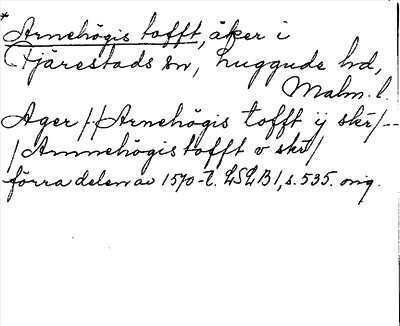 * Arnehögis tofft, åker i
Tjärestads sn, Luggude hd,
Malm. l.
Ager // Arnehögis tofft ij skr/--
/ Ammehögis tofft v skr/
förra delen av 1570-t. LSLB 1, s. 535. orig.